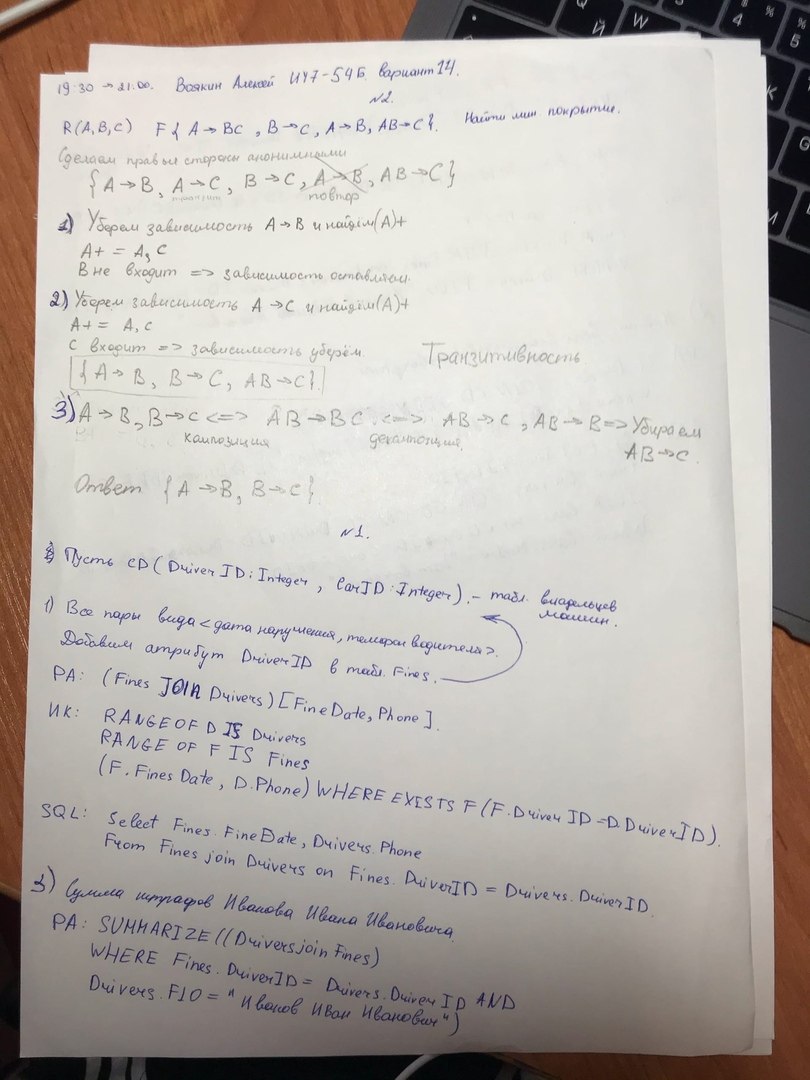 19:30 → 21:00. Воякин Алексей ИУ7-54Б вариант 14.
№2.
R(A,B,C) F{ A → BC , B → C , A → B, AB → C}. Найти мин покрытие.
Сделаем правые стороны анонимными
{ A → B, A → C, B → C, A → B, AB → C}
транзит повтор
1) Уберем зависимость A → B и найдём (A)+
A+ = A, C
B не входит => зависимость оставляем.
2) Уберем зависимость A → C и найдём (A)+
A+ = A, C
C входит => зависимость уберём. Транзитивность
{ A → B, B → C, AB → C}.
3) A → B, B → C <=> AB → BC <=> AB → C , AB → B => Убираем
композиция декомпозиция AB → C.
Ответ { A → B, B → C}
№1.
Пусть CD ( Driver ID : Integer , CarID : Integer). – табл. владельцев
машин.
1) Все пары вида < дата нарушения, телефон водителя>.
Добавим атрибут DriverID в табл. Fines.
РА: (Fines JOIN Drivers) [FineDate, Phone].
ИК: RANGE OF D IS Drivers
RANGE OF F IS Fines
(F. Fines Date , D. Phone) WHERE EXISTS F (F. Driver ID = D. DriverID).
SQL: Select Fines. FineDate, Drivers. Phone
From Fines join Drivers on Fines. DriverID = Drivers. DriverID.
3) Сумма штрафов Иванова Ивана Ивановича.
РА: SUMMARIZE ((Drivers join Fines)
WHERE Fines. DriverID = Drivers. Driver ID AND
Drivers. FIO = " Иванов Иван Иванович")